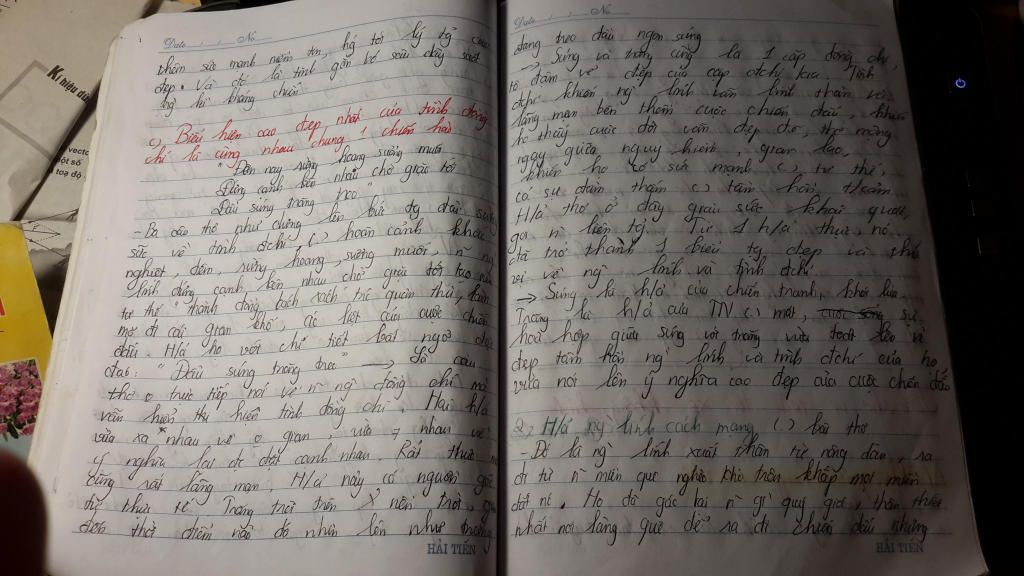 Kí hiệu
vecto
một số
toạ độ
Date . . . No
thêm sức mạnh niềm tin, hg tới lý tg cao
đẹp. Và đc là tình gắn bó sâu dày
hg kì kháng chiến
c) Biểu hiện cao đẹp nhất của tình đồng
chí là cùng nhau chung 1 chiến hào
"Đêm nay rừng hoang sương muối
Đứng cạnh bên nhau chờ giặc tới
Đầu súng trăng treo"
- Ba câu thơ như dựng lên bức tg đài sừng
sững về tình đchí () hoàn cảnh khắc
nghiệt, đêm, rừng hoang, sương muối, n ng
lính đứng cạnh bên nhau chờ giặc tới tạo nên
tư thế thành đồng vách sắt quân thù,
mọi gian khổ, ác liệt của cuộc chiến
đấu. H/á họ với chi tiết bất ngờ
"Đầu súng trăng treo" → Là câu
thơ o trực tiếp nói về n ng đồng chí mà
vẫn hiện tình đồng chí. Hai h/á
vừa xa nhau về o gian, vừa ≠ nhau về
ý nghĩa lại đc đặt cạnh nhau. Rất thực mà
cũng rất lãng mạn, H/á này có nguồn gốc
Trăng trôi trên nền trời,
đến thời điểm nào đó nhìn lên như
HẢI TIẾN
Date . . . No
đang treo đầu ngọn súng
→ Súng và trăng cũng là 1 cặp đồng chí,
tô đậm vẻ đẹp của cặp đchí kia. Tình
đchí khiến ng lính tinh thần
lãng mạn bên thềm cuộc chiến đấu, khiến
họ thấy cuộc đời vẫn đẹp đẽ, thơ mộng
ngay giữa nguy hiểm, gian lao,
khiến họ có sức mạnh () tư thế,
có sự đằm thắm () tâm hồn, t/cảm.
H/á thơ ở đây giàu sức khái quát,
gợi n liên tg. Từ 1 h/á thực, nó
đã trở thành 1 biểu tg đẹp và thú
vị về ng lính và tình đchí.
→ Súng là h/á của chiến tranh, khói lửa.
Trăng là h/á của TN () mát, sự
hoà hợp giữa súng với trăng vừa vẻ
đẹp tâm hồn ng lính và tình đchí của họ
vừa nói lên ý nghĩa cao đẹp của cuộc chiến đấu
2, H/á ng lính cách mạng () bài thơ
- Đó là ng lính xuất thân từ nông dân, ra
đi từ n miền quê nghèo khó trên khắp mọi miền
đất nc. Họ đã gác lại n gì quý giá, thân thiết
nhất nơi làng quê để ra đi chiến đấu nhưng
HẢI TIẾN